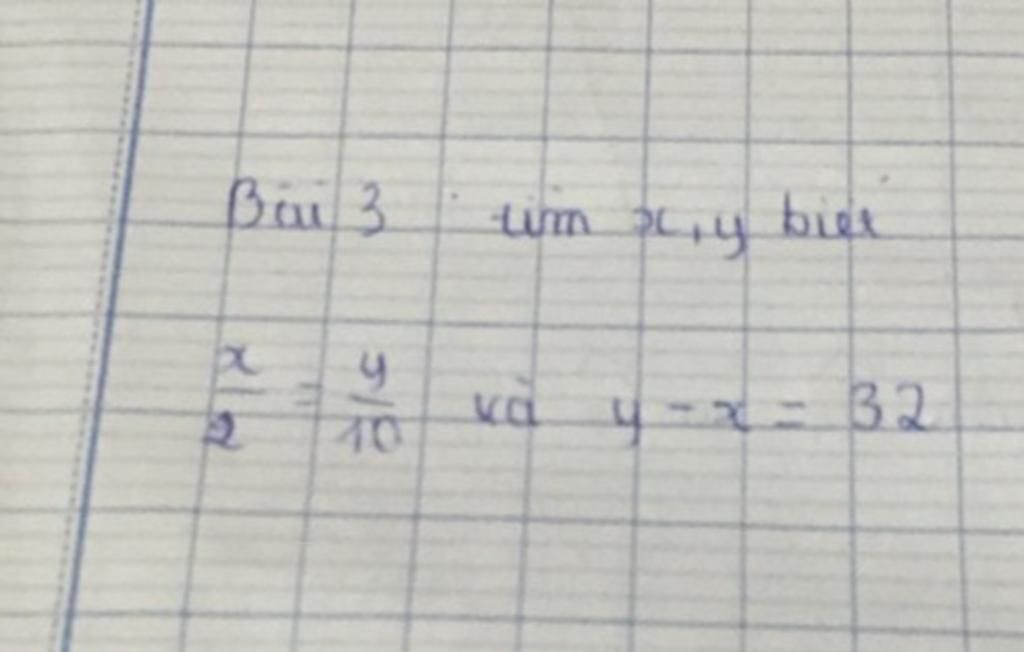 Bài 3 tìm x, y biết
x/2 = y/10 và y - x = 32